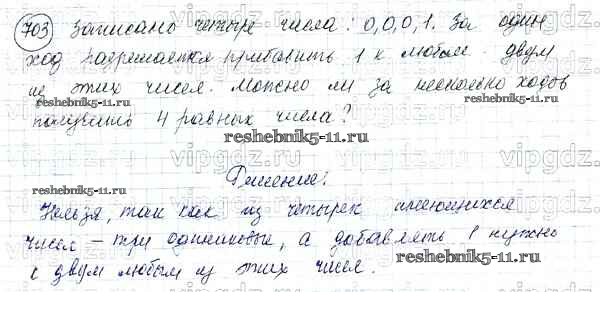 703 Записано четыре числа: 0,0,0,1. За один
ход разрешается прибавить 1 к любым двум
из этих чисел. Можно ли за несколько ходов
reshebnik5-11.ru
получить 4 равных числа?
reshebnik5-11.ru
Решение:
reshebnik5-11.ru
Нельзя, так как из четырех имеющихся
чисел – три одинаковые, а добавлять 1 нужно
к двум любым из этих чисел.
reshebnik5-11.ru